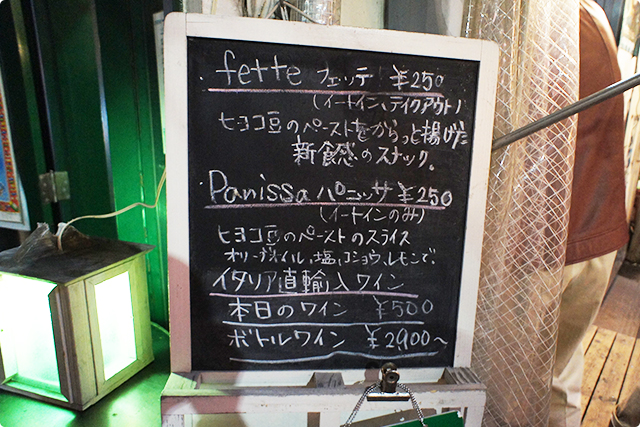 ・fette フェッテ ¥250
(イートイン、テイクアウト)
ヒヨコ豆のペーストをからっと揚げた
新食感のスナック。
Panissa パニッサ ¥250
(イートインのみ)
ヒヨコ豆のペーストのスライス
オリーブオイル、塩、コショウ、レモンで。
イタリア直輸入ワイン
本日のワイン ¥500
ボトルワイン ¥2,900～